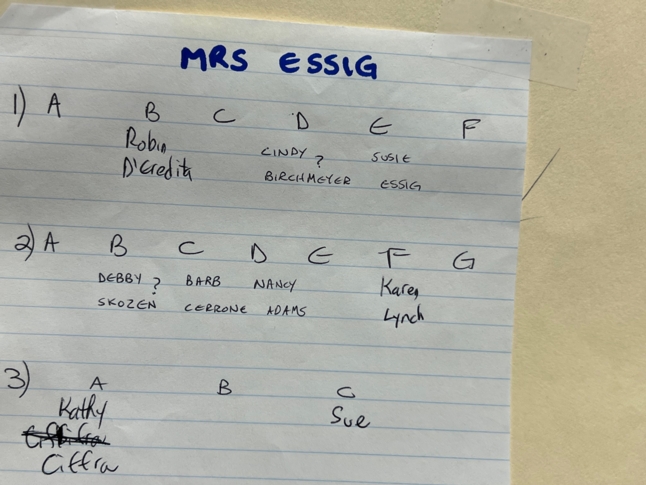 MRS ESSIG
1) A B C D E F
Robin CINDY ? SUSIE
D'Credita BIRCHMEYER ESSIG
2) A B C D E F G
DEBBY ? BARB NANCY Karen
SKOZEN CERRONE ADAMS Lynch
3) A B C
Kathy Sue
Ciffra